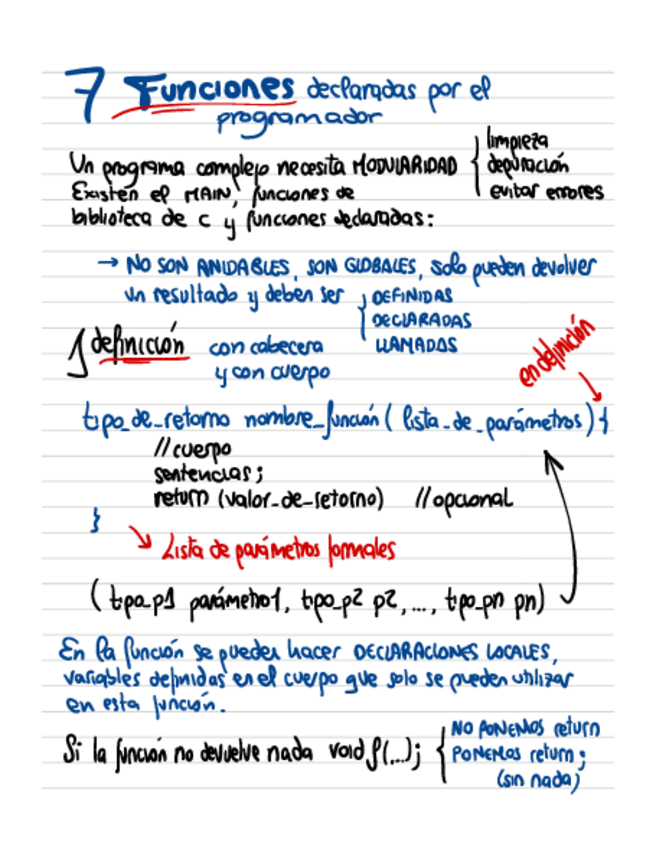 7 Funciones declaradas por el
programador
Un programa complejo necesita MODULARIDAD { limpieza
depuración
evitar errores
Existen el MAIN, funciones de
biblioteca de c y funciones declaradas:
→ NO SON ANIDABLES, SON GLOBALES, solo pueden devolver
un resultado y deben ser { DEFINIDAS
DECLARADAS
LLAMADAS
1 definición con cabecera
y con cuerpo
en definición
tipo_de_retorno nombre_función ( lista_de_parámetros ) {
// cuerpo
sentencias;
return (valor_de_retorno) // opcional
}
Lista de parámetros formales
( tipo_p1 parámetro1, tipo_p2 p2, ..., tipo_pn pn )
En la función se pueden hacer DECLARACIONES LOCALES,
variables definidas en el cuerpo que solo se pueden utilizar
en esta función.
Si la función no devuelve nada void f(...); { NO PONEMOS return
PONEMOS return;
(sin nada)